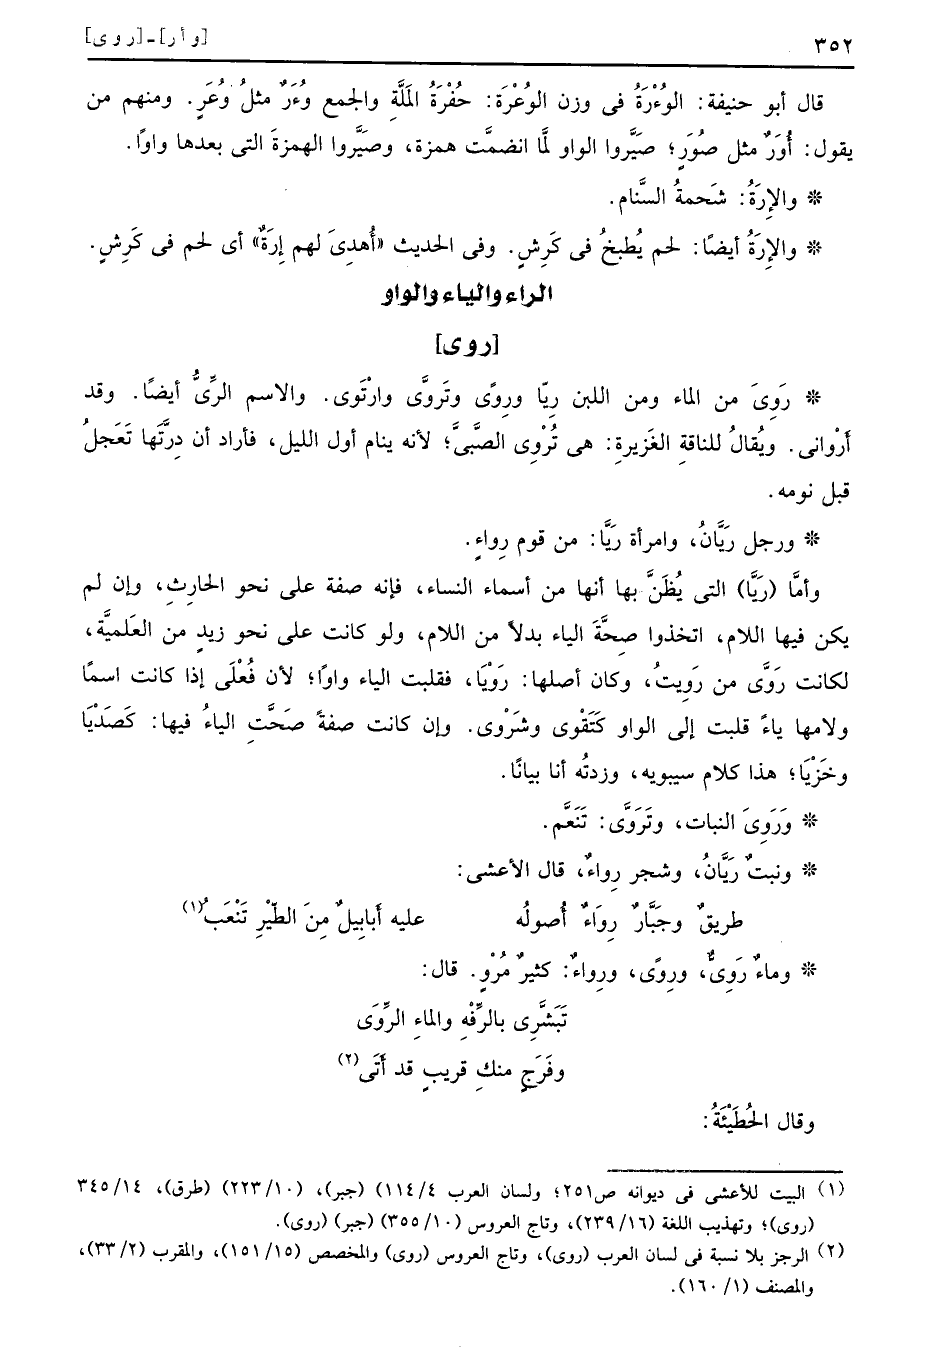 ٣٥٢
[وأر]-[روى]
قال أبو حنيفة: الوُءْرَةُ فى وزن الوُعْرَة: حُفْرَةُ المَلَّةِ والجمع وُءَرٌ مثلُ وُعَرٍ. ومنهم من
يقول: أُوَرٌ مثل صُوَرٍ؛ صَيَّروا الواو لمَّا انضمَّت همزة، وصيَّروا الهمزةَ التى بعدها واوًا.
* والإرَةُ: شَحمةُ السَّنام.
* والإرَةُ أيضًا: لحم يُطبخُ فى كَرِشٍ. وفى الحديث «أُهدِىَ لهم إرَةٌ» أى لحم فى كَرِشٍ.
الراء والياء والواو
[روى]
* رَوِىَ من الماء ومن اللبن رِيّا ورِوًى وتَروَّى وارْتَوى. والاسم الرِّىُّ أيضًا. وقد
أَرْوانى. ويُقالُ للناقةِ الغَزيرةِ: هى تُرْوِى الصَّبىَّ؛ لأنه ينام أول الليل، فأراد أن دِرتَّها تَعَجلُ
قبل نومه.
* ورجل رَيَّانُ، وامرأة رَيَّا: من قوم رِواءٍ.
وأمَّا (رَيَّا) التى يُظَنَّ بها أنها من أسماء النساء، فإنه صفة على نحو الحارِثِ، وإن لم
يكن فيها اللام، اتخذوا صحَّةَ الياء بدلاً من اللام، ولو كانت على نحو زيدٍ من العَلَميَّة،
لكانت رَوَّى من رَوِيتُ، وكان أصلها: رَوْيَا، فقلبت الياء واوًا؛ لأن فُعْلَى إذا كانت اسمًا
ولامها ياءً قلبت إلى الواو كَتَقْوى وشَرْوى. وإن كانت صفةً صَحَّتِ الياءُ فيها: كَصَدْيَا
وخَزْيَا؛ هذا كلام سيبويه، وزدتُه أنا بيانًا.
* ورَوِىَ النبات، وتَرَوَّى: تَنَعَّم.
* ونبتٌ رَيَّانُ، وشجر رِواءٌ، قال الأعشى:
طريقٌ وجَبَّارٌ رِوَاءٌ أُصولُه عليه أَبابِيلٌ مِنَ الطَّيْرِ تَنْعَبُ(١)
* وماءٌ رَوِىٌّ، ورِوًى، ورواءٌ: كثيرٌ مُرْوٍ. قال:
تَبَشَّرِى بالرِّفْهِ والماءِ الرِّوَى
وفَرَجٍ منكِ قريبٍ قد أَتَى(٢)
وقال الحُطَيْئَةُ:
(١) البيت للأعشى فى ديوانه ص٢٥١؛ ولسان العرب ١١٤/٤) (جبر)، (٢٢٣/١٠) (طرق)، ٣٤٥/١٤
(روى)؛ وتهذيب اللغة (٢٣٩/١٦)، وتاج العروس (٣٥٥/١٠) (جبر) (روى).
(٢) الرجز بلا نسبة فى لسان العرب (روى)، وتاج العروس (روى) والمخصص (١٥١/١٥)، والمقرب (٣٣/٢)،
والمصنف (١٦٠/١).